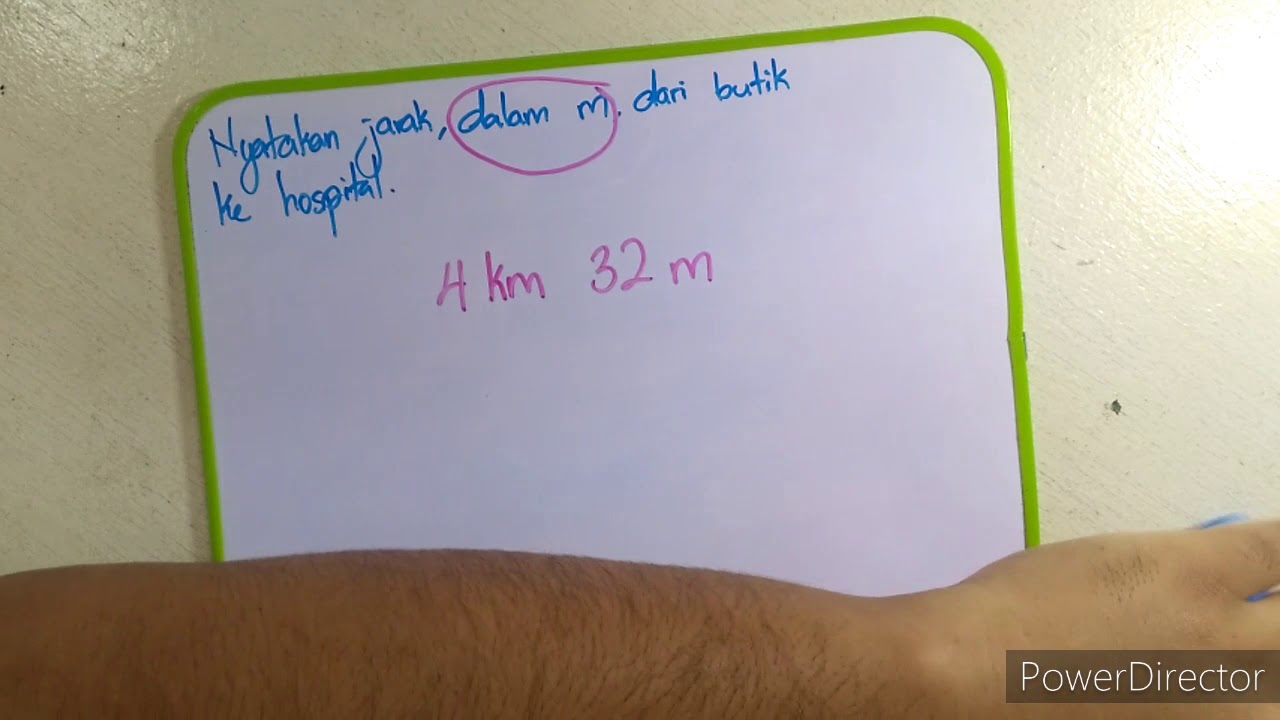 Nyatakan jarak, dalam m. dari butik
ke hospital.
4 km 32 m
PowerDirector